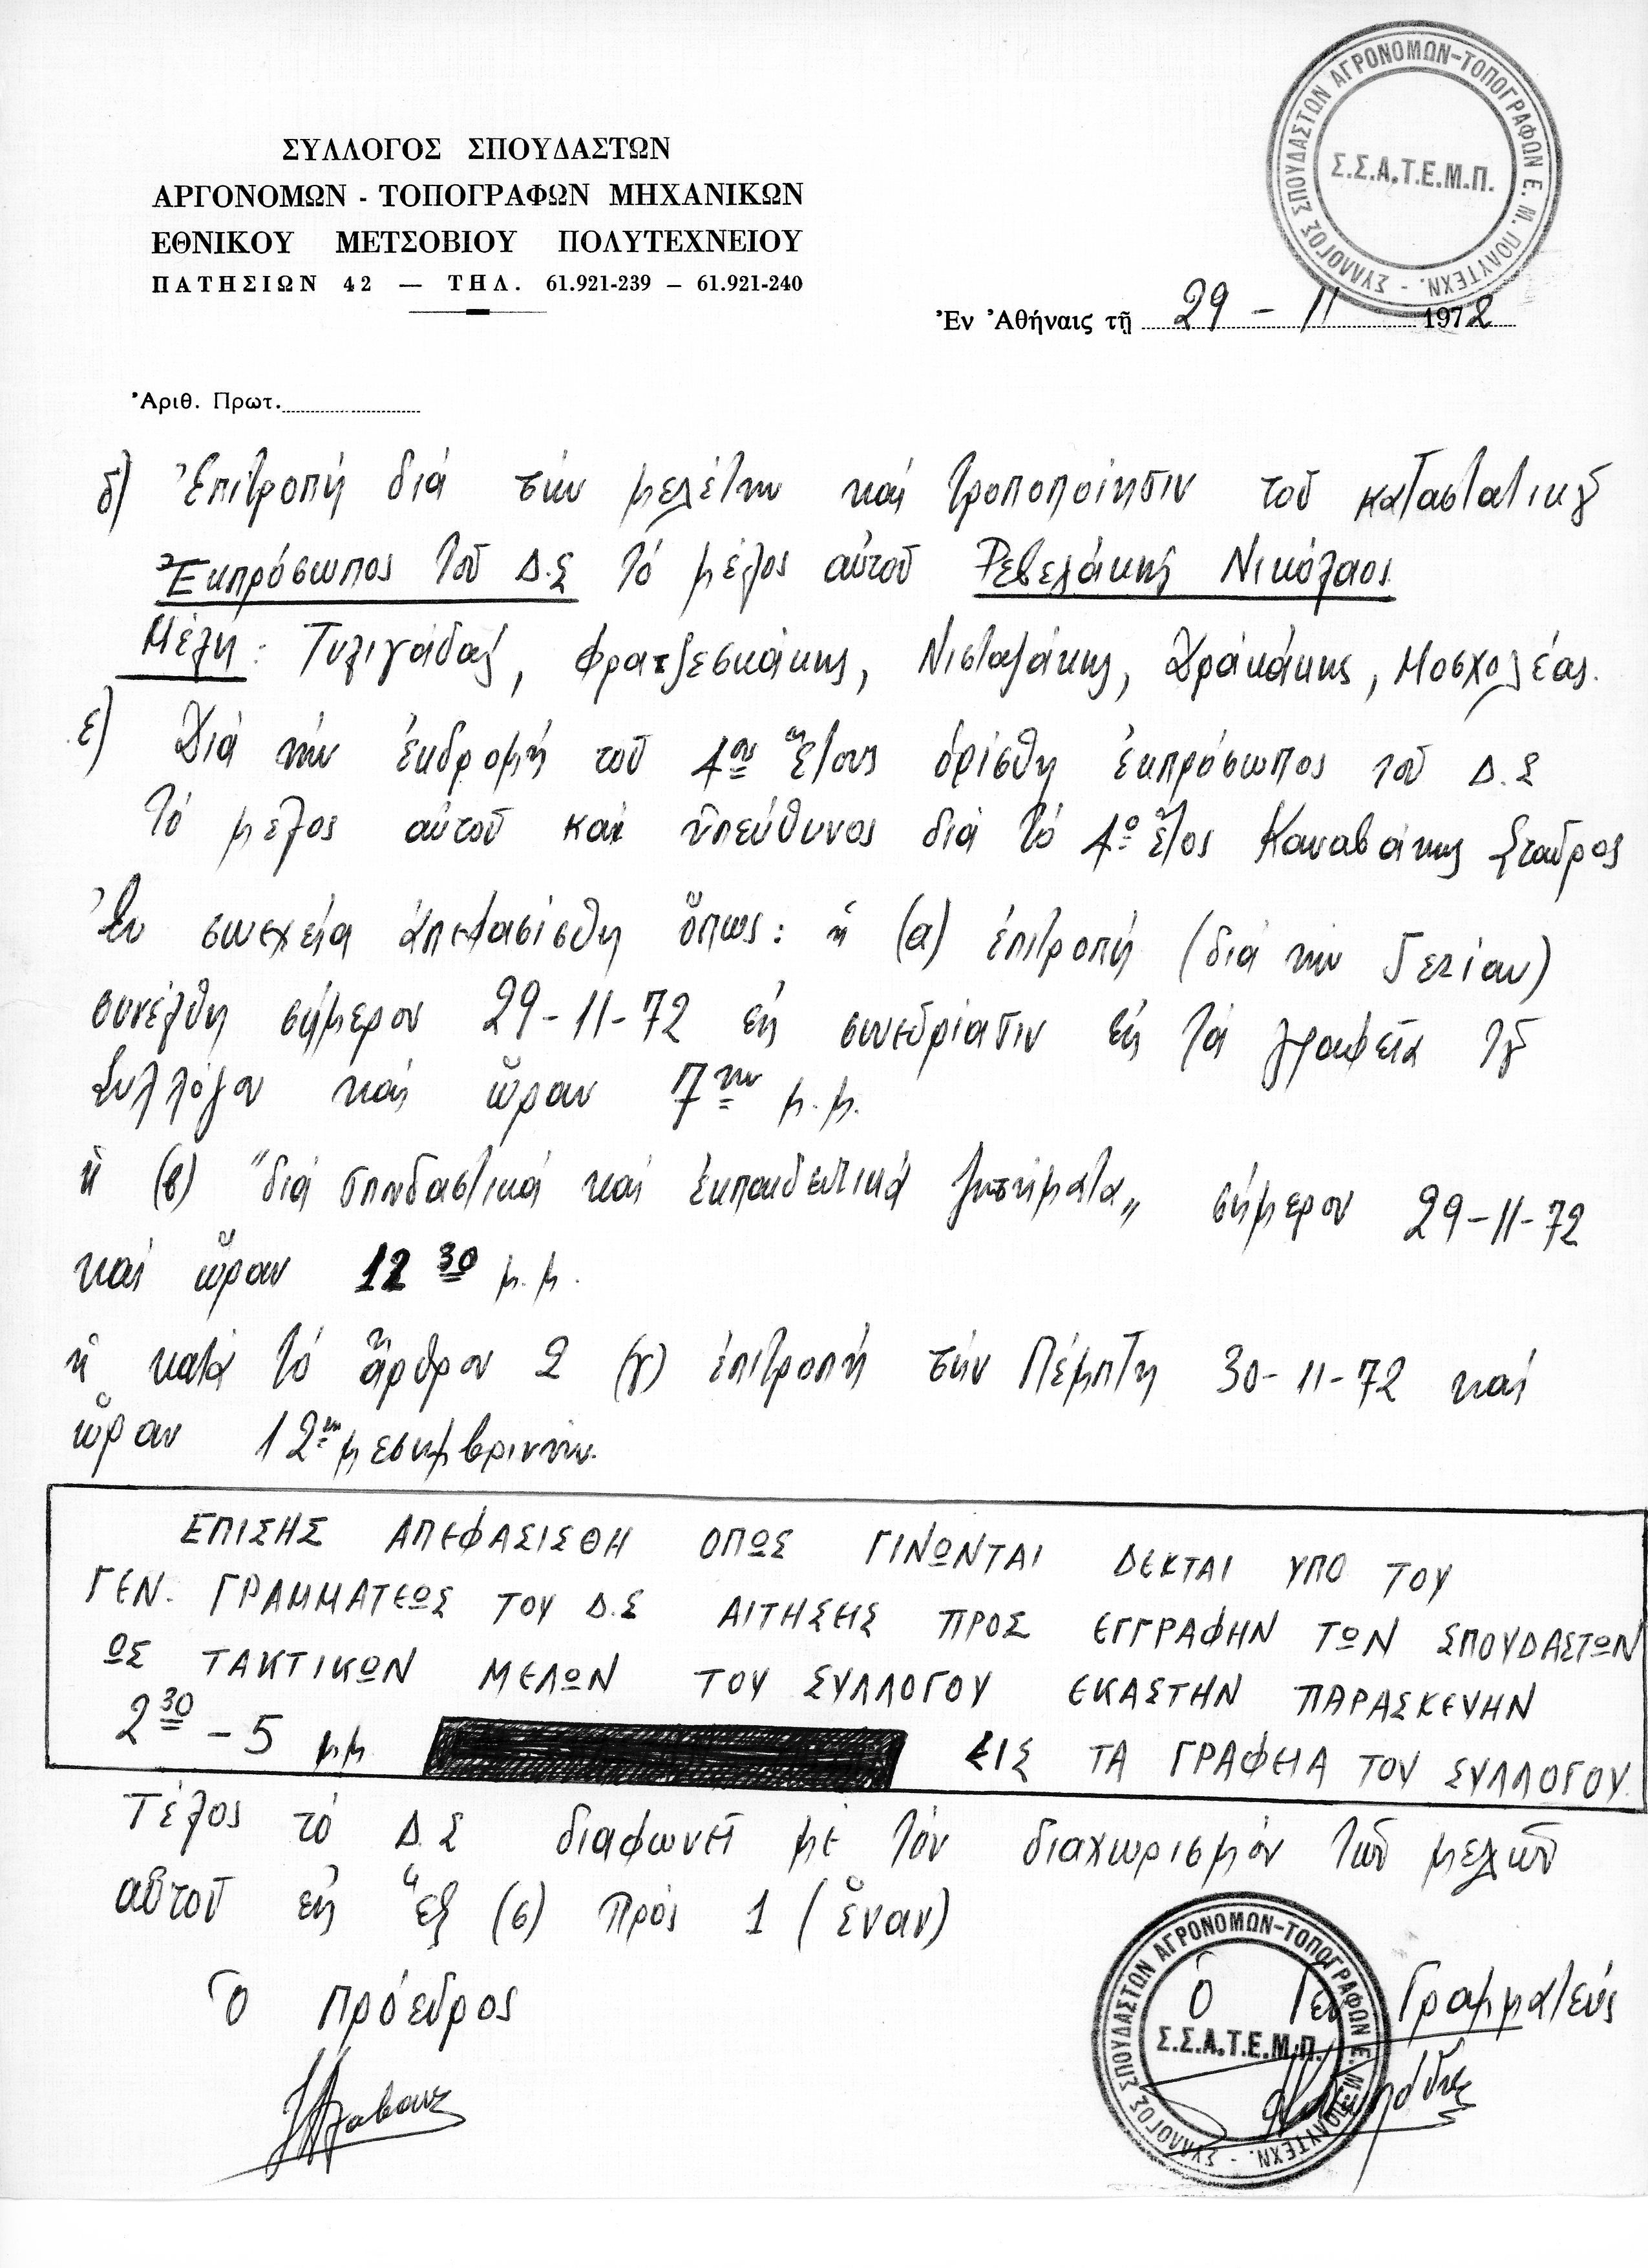 ΣΥΛΛΟΓΟΣ ΣΠΟΥΔΑΣΤΩΝ ΑΓΡΟΝΟΜΩΝ-ΤΟΠΟΓΡΑΦΩΝ Ε. Μ. ΠΟΛΥΤΕΧΝ. -
Σ.Σ.Α.Τ.Ε.Μ.Π.
ΣΥΛΛΟΓΟΣ ΣΠΟΥΔΑΣΤΩΝ
ΑΡΓΟΝΟΜΩΝ - ΤΟΠΟΓΡΑΦΩΝ ΜΗΧΑΝΙΚΩΝ
ΕΘΝΙΚΟΥ ΜΕΤΣΟΒΙΟΥ ΠΟΛΥΤΕΧΝΕΙΟΥ
ΠΑΤΗΣΙΩΝ 42 — ΤΗΛ. 61.921-239 — 61.921-240
Ἐν Ἀθήναις τῇ 29 - 11 1972
Ἀριθ. Πρωτ.
δ) Ἐπιτροπή διά τήν μελέτην καί τροποποίησιν τοῦ καταστατικȣ͂
Ἐκπρόσωπος τοῦ Δ.Σ τό μέλος αὐτοῦ Ρεβελάκης Νικόλαος
Μέλη: Τυλιγάδας, Φρατζεσκάκης, Νισταζάκης, Δρακάκης, Μοσχολέας.
ε) Διά τήν ἐκδρομή τοῦ 4ου ἔτους ὁρίσθη ἐκπρόσωπος τοῦ Δ.Σ
τό μελος αὐτοῦ και ὑπεύθυνος διά τό 4ο ἔτος Καναβάκης Σταῦρος
Ἐν συνεχεία ἀπεφασίσθη ὅπως: ἡ (α) ἐπιτροπή (διά τήν 5ετίαν)
συνέλθη σήμερον 29-11-72 εἰς συνεδρίασιν εἰς τά γραφεῖα τȣ͂
Συλλόγου καί ὥραν 7ην μ.μ.
ἡ (β) "διά σπουδαστικά καί ἐκπαιδευτικά ζητήματα„ σήμερον 29-11-72
καί ὥραν 12 30 μ.μ.
ἡ κατά τό ἄρθρον 2 (γ) ἐπιτροπή τήν Πέμπτη 30-11-72 καί
ὥραν 12ην μεσημβρινήν.
ΕΠΙΣΗΣ ΑΠΕΦΑΣΙΣΘΗ ΟΠΩΣ ΓΙΝΩΝΤΑΙ ΔΕΚΤΑΙ ΥΠΟ ΤΟΥ
ΓΕΝ. ΓΡΑΜΜΑΤΕΩΣ ΤΟΥ Δ.Σ ΑΙΤΗΣΕΙΣ ΠΡΟΣ ΕΓΓΡΑΦΗΝ ΤΩΝ ΣΠΟΥΔΑΣΤΩΝ
ΩΣ ΤΑΚΤΙΚΩΝ ΜΕΛΩΝ ΤΟΥ ΣΥΛΛΟΓΟΥ ΕΚΑΣΤΗΝ ΠΑΡΑΣΚΕΥΗΝ
2 30 - 5 μμ ΕΙΣ ΤΑ ΓΡΑΦΕΙΑ ΤΟΥ ΣΥΛΛΟΓΟΥ.
Τέλος τό Δ.Σ διαφωνεῖ μέ τόν διαχωρισμόν τῶν μελῶν
αὐτοῦ εἰς ἕξ (6) πρός 1 (ἕναν)
Ὁ Πρόεδρος
Ὁ Γεν Γραμματεύς
ΣΥΛΛΟΓΟΣ ΣΠΟΥΔΑΣΤΩΝ ΑΓΡΟΝΟΜΩΝ-ΤΟΠΟΓΡΑΦΩΝ Ε. Μ. ΠΟΛΥΤΕΧΝ. -
Σ.Σ.Α.Τ.Ε.Μ.Π.